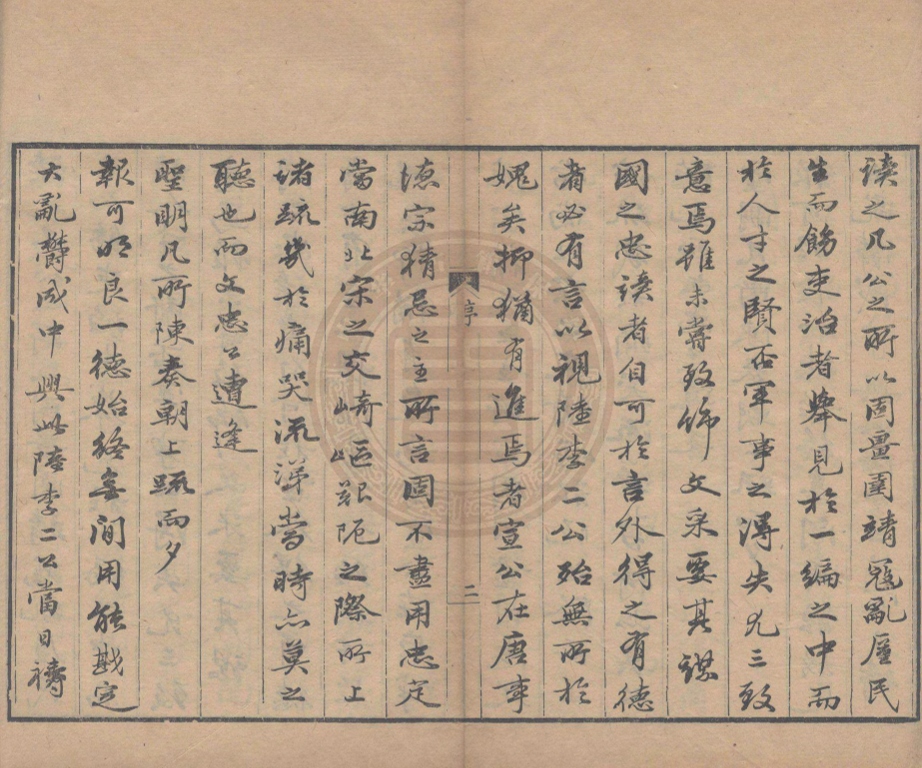 讀之凡公之所以固畺圉靖寇亂厪民
生而飭吏治者舉見於一編之中而
於人才之賢否軍事之淂失尤三致
意焉雖未嘗致飾文采要其謀
國之忠讀者自可於言外得之有德
者必有言以視陸李二公殆無所於
媿矣抑猶有進焉者宣公在唐事
序
二
德宗猜忌之主所言固不盡用忠定
當南北宋之交崎嶇艱阨之際所上
諸疏幾於痛哭流涕當時亦莫之
聽也而文忠公遭逢
聖明凡所陳奏朝上疏而夕
報可明良一德始終無間用能戡定
大亂鬱成中興此陸李二公當日禱